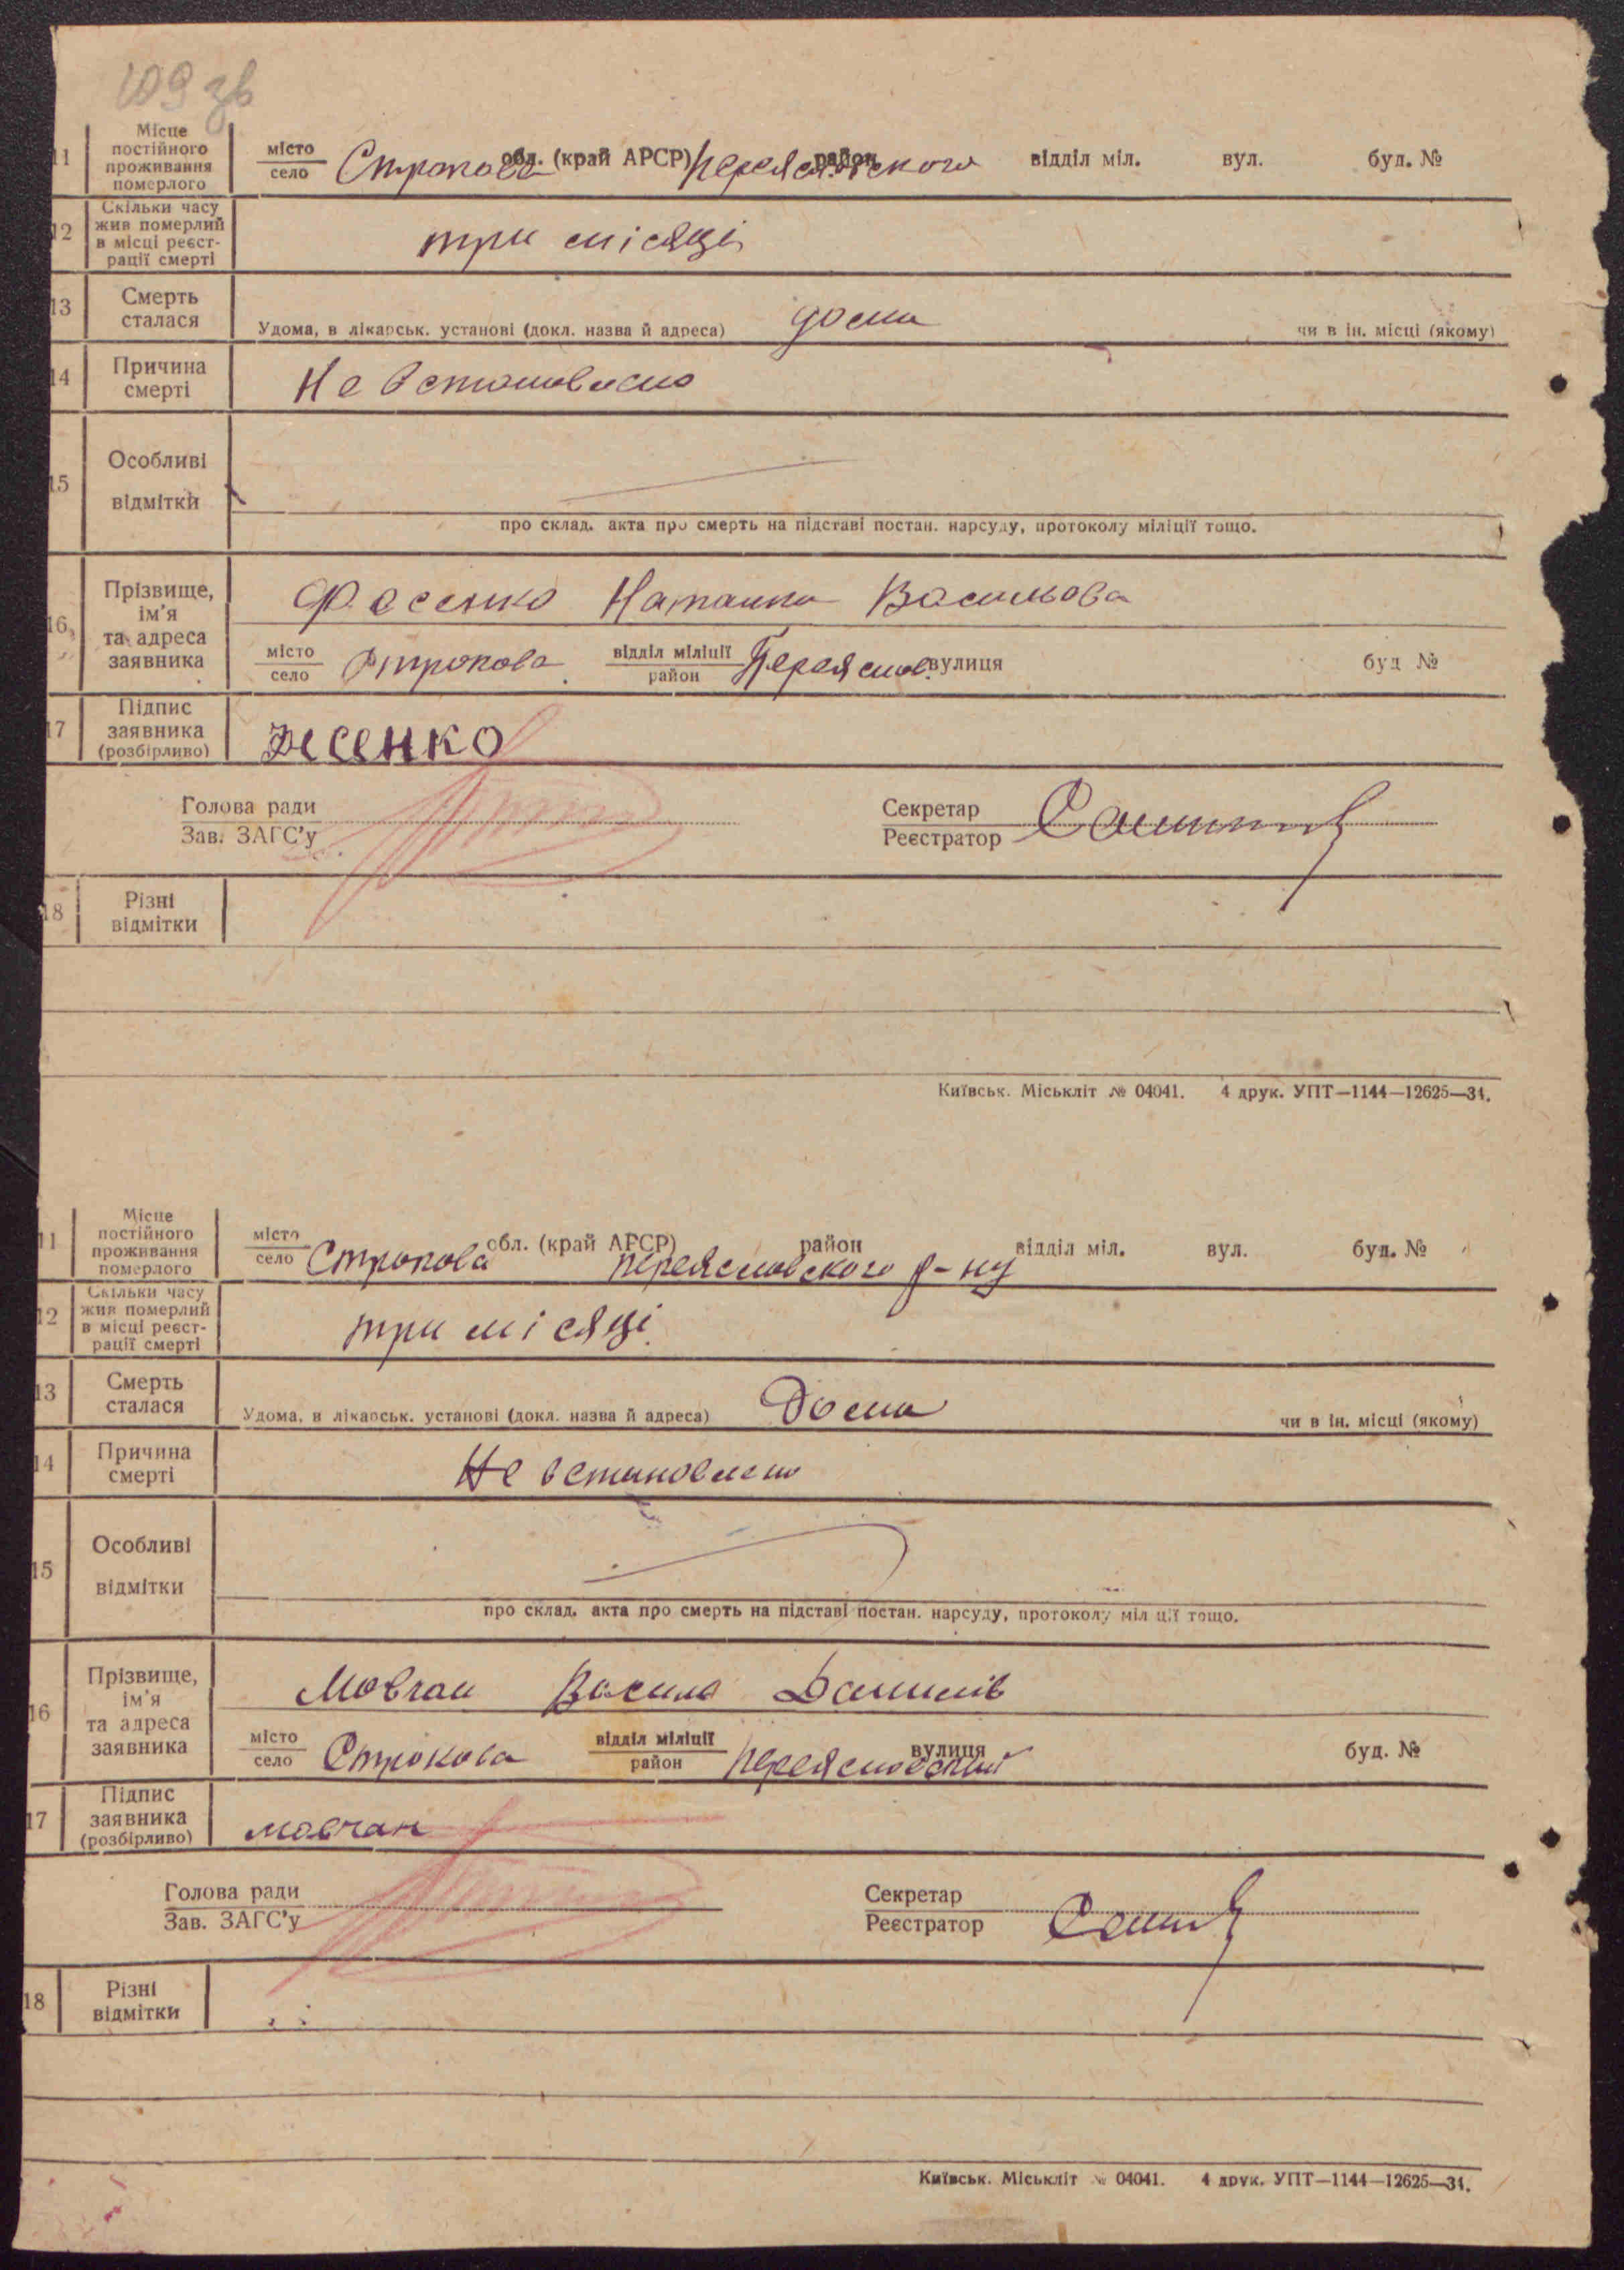 109 зв
11 Місце постійного проживання померлого місто село Строкова обл. (край АРСР) Переяславского район відділ міл. вул. буд. №
12 Скільки часу жив померлий в місці реєстрації смерті три місяці
13 Смерть сталася Удома, в лікарськ. установі (докл. назва й адреса) дома чи в ін. місці (якому)
14 Причина смерті Не встановлено
15 Особливі відмітки
про склад. акта про смерть на підставі постан. нарсуду, протоколу міліції тощо.
16 Прізвище, ім'я та адреса заявника Фесенко Наталка Васильова
місто село Строкова відділ міліції район Переяслов. вулиця буд №
17 Підпис заявника (розбірливо)
Голова ради Зав. ЗАГС'у Секретар Реєстратор
18 Різні відмітки
Київськ. Міськліт № 04041. 4 друк. УПТ—1144—12625—31.
11 Місце постійного проживання померлого місто село Строкова обл. (край АРСР) Переясловского р-ну район відділ міл. вул. буд. №
12 Скільки часу жив померлий в місці реєстрації смерті три місяці
13 Смерть сталася Удома, в лікарськ. установі (докл. назва й адреса) Дома чи в ін. місці (якому)
14 Причина смерті Не встановлено
15 Особливі відмітки
про склад. акта про смерть на підставі постан. нарсуду, протоколу міліції тощо.
16 Прізвище, ім'я та адреса заявника Мовчан Василь Данилів
місто село Строкова відділ міліції район Переясловский вулиця буд. №
17 Підпис заявника (розбірливо) мовчан
Голова ради Зав. ЗАГС'у Секретар Реєстратор
18 Різні відмітки
Київськ. Міськліт № 04041. 4 друк. УПТ—1144—12625—31.